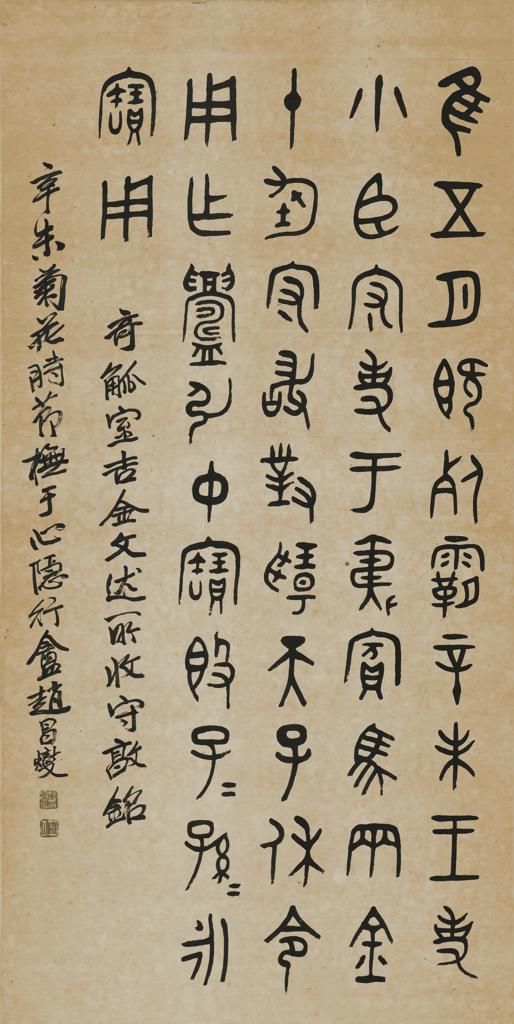 隹五月既死霸辛未王吏
小臣守吏于夷賓馬兩金
十鈞守敢對揚天子休令
用乍鑄引中寶𣪘子=孫=永
寶用
奇觚室吉金文述所收守敦銘
辛未菊花時節橅于心隱行盦趙昌燮